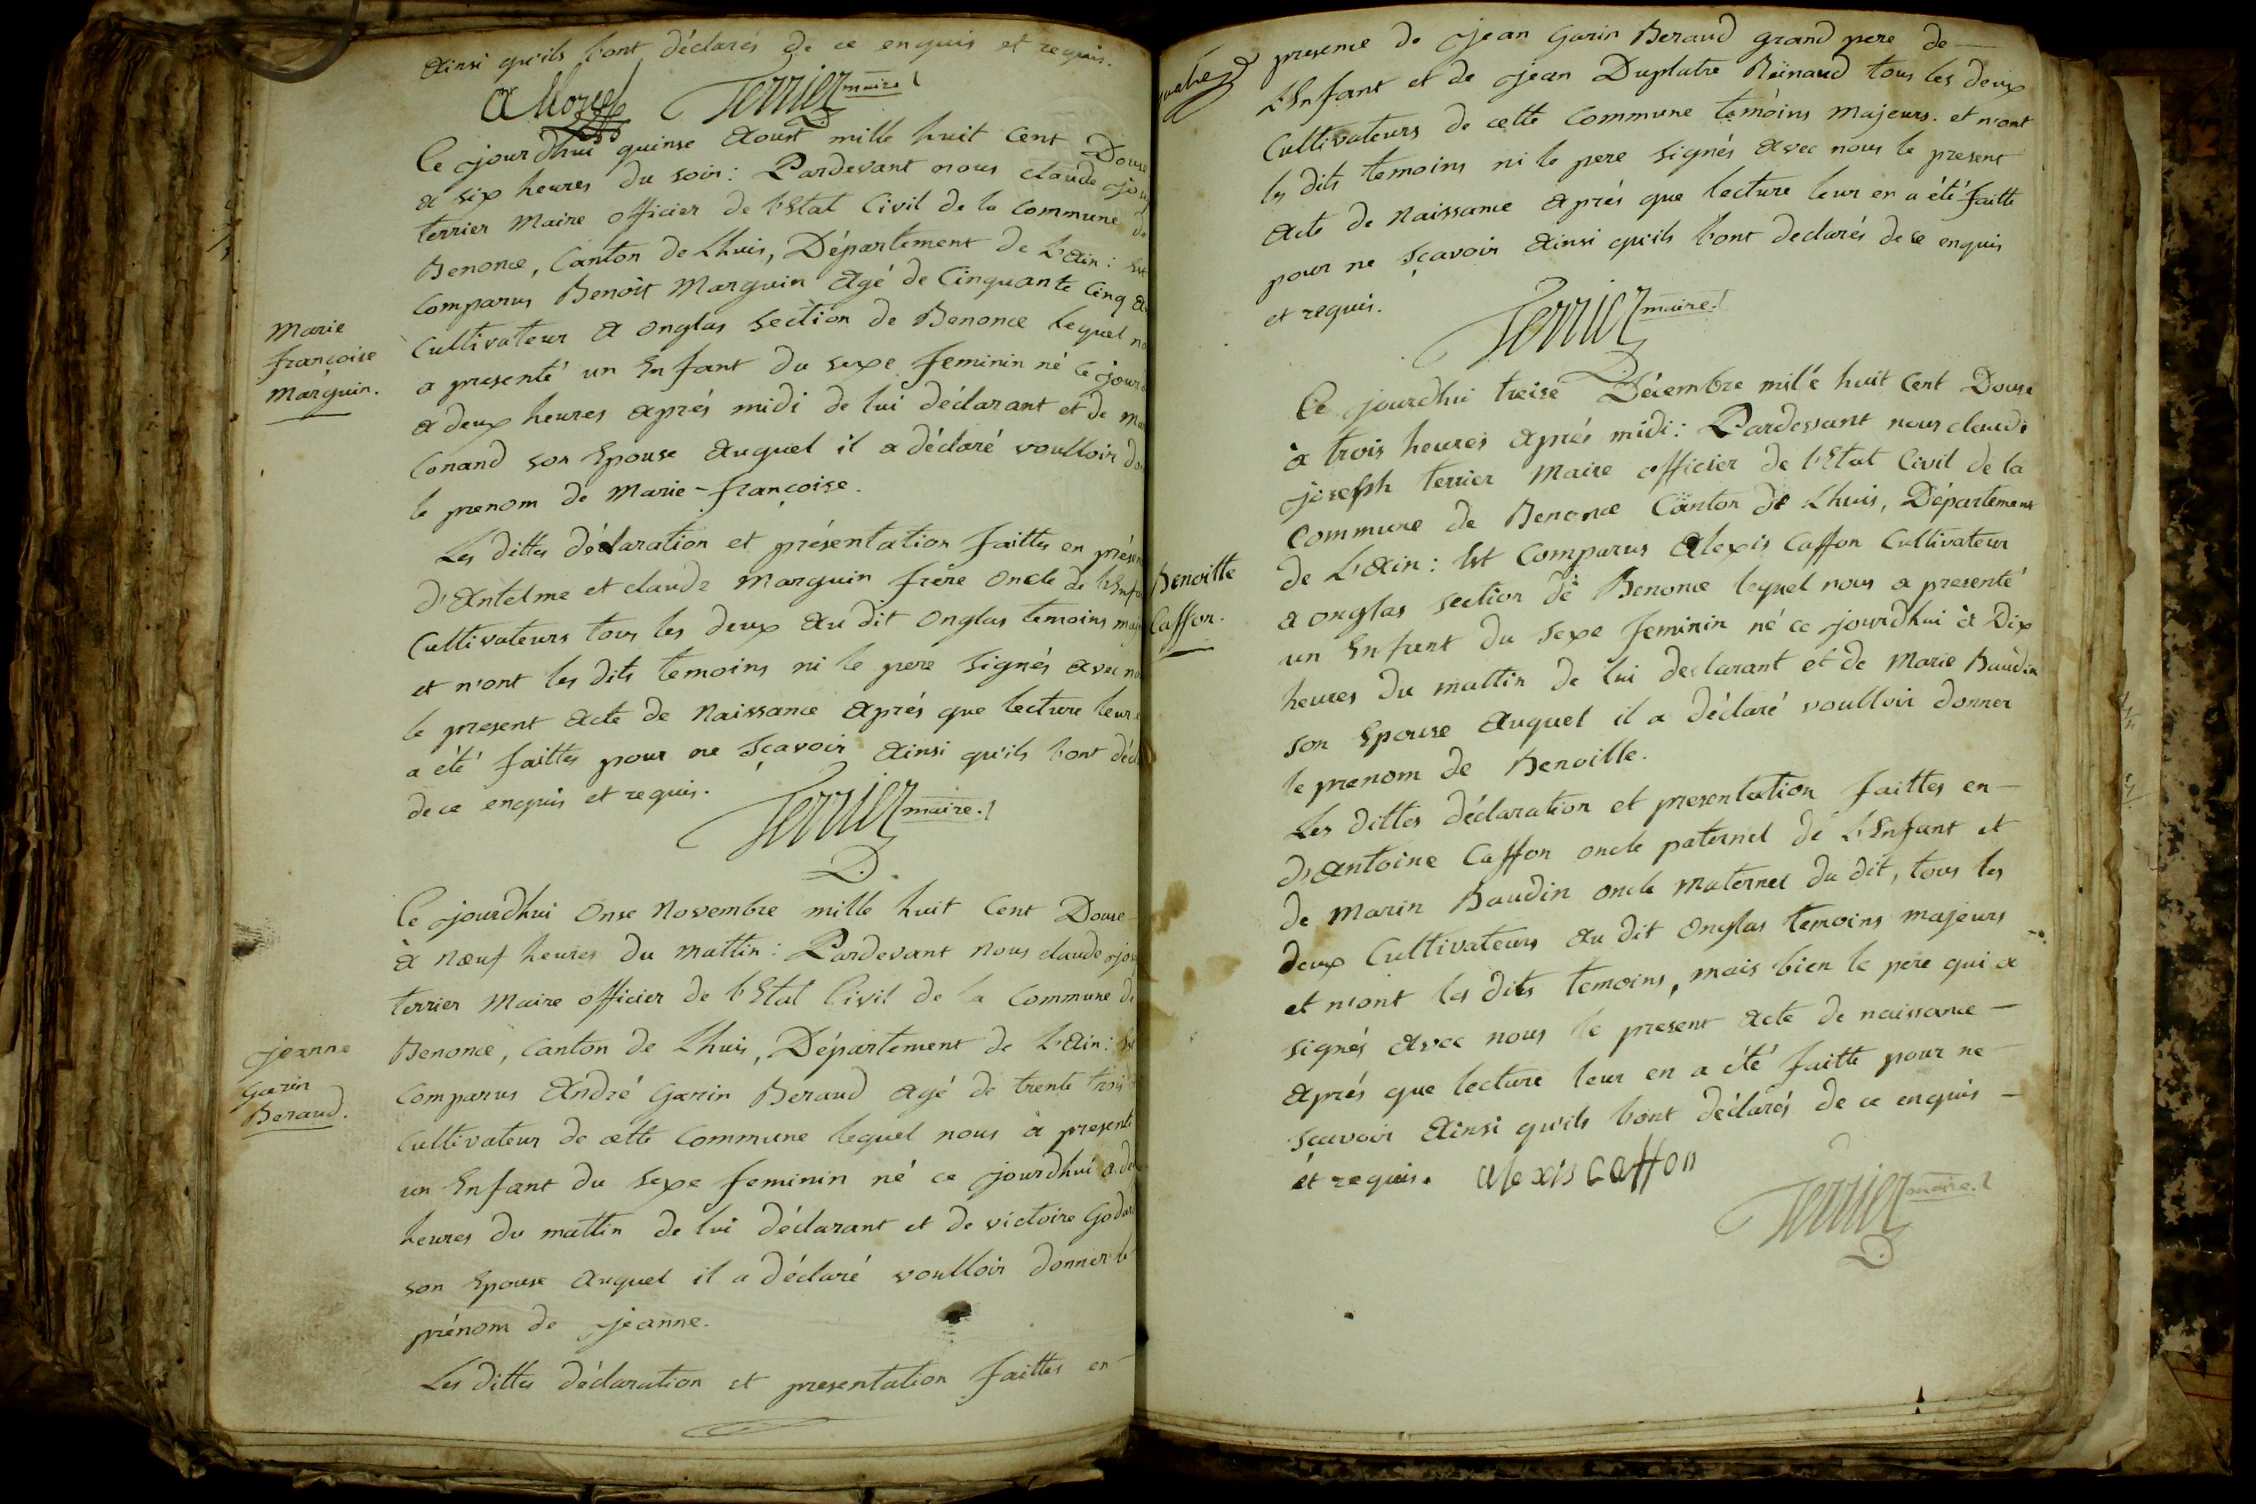 ainsi qu'ils l'ont déclarés de ce enquis et requis.
AMorel Terrier maire
Ce jourdhui quinse aoust mille huit cent Douse
a six heures du soir : Pardevant nous claude
terrier Maire officier de l'Etat Civil de la commune de
Benonce, Canton de Lhuis, Département de L'ain : Est
Comparus Benoit Marguin agé de Cinquante Cinq
Cultivateur a onglas section de Benonce lequel
a presenté un Enfant du sexe feminin né ce jour
a deux heures aprés midi de lui déclarant et de
Conand son Epouse auquel il a déclaré voulloir
le prenom de Marie-françoise.
Marie
françoise
Marguin.
Les dittes déclaration et présentation faittes en
d'Antelme et claude Marguin frère oncle de l'Enf
Cultivateurs tous les deux au dit onglas temoins
et n'ont les dits temoins ni le pere signés avec
le present acte de Naissance aprés que lecture leur
a été faittes pour ne sçavoir ainsi qu'ils l'ont
de ce enquis et requis.
Terrier maire.
Ce jourdhui onse Novembre mille huit Cent Douse
à nœuf heures du mattin : Pardevant nous claude
terrier Maire officier de l'Etat Civil de la Commune de
Benonce, Canton de Lhuis, Département de L'ain : Est
Comparus André Garin Beraud agé de trente trois
Cultivateur de cette Commune lequel nous à presenté
un Enfant du sexe feminin né ce jourdhui a
heures du mattin de lui déclarant et de victoire
son Epouse auquel il a déclaré voulloir donner le
prénom de jeanne.
jeanne
Garin
Beraud.
Les dittes déclaration et presentation faittes en
presence de jean Garin Beraud grand pere de
L'Enfant et de jean Duplatre Reinaud tous les deux
Cultivateurs de cette Commune temoins Majeurs. et n'ont
les dits temoins ni le pere signés avec nous le present
acte de Naissance aprés que lecture leur en a été faitte
pour ne sçavoir ainsi qu'ils l'ont declarés de ce enquis
et requis.
Terrier maire.
Ce jourdhui treise Décembre mille huit Cent Douse
à trois heures aprés midi : Pardevant nous claude
joseph terrier Maire officier de l'Etat Civil de la
Commune de Benonce Canton de Lhuis, Département
de L'ain : Est Comparus Alexis Caffon Cultivateur
a onglas section de Benonce lequel nous a presenté
un Enfant du sexe feminin né ce jourdhui à Dix
heures du mattin de lui declarant et de Marie Baudin
son Epouse auquel il a déclaré voulloir donner
le prenom de Benoitte.
Benoitte
Caffon.
Les dittes déclaration et presentation faittes en
d'antoine Caffon oncle paternel de L'Enfant et
de Marin Baudin oncle Maternel du dit, tous les
deux Cultivateurs au dit onglas temoins majeurs
et n'ont les dits temoins, mais bien le pere qui a
signés avec nous le present acte de naissance
aprés que lecture leur en a été faitte pour ne
sçavoir ainsi qu'ils l'ont déclarés de ce enquis
et requis. alexis caffon
Terrier maire.